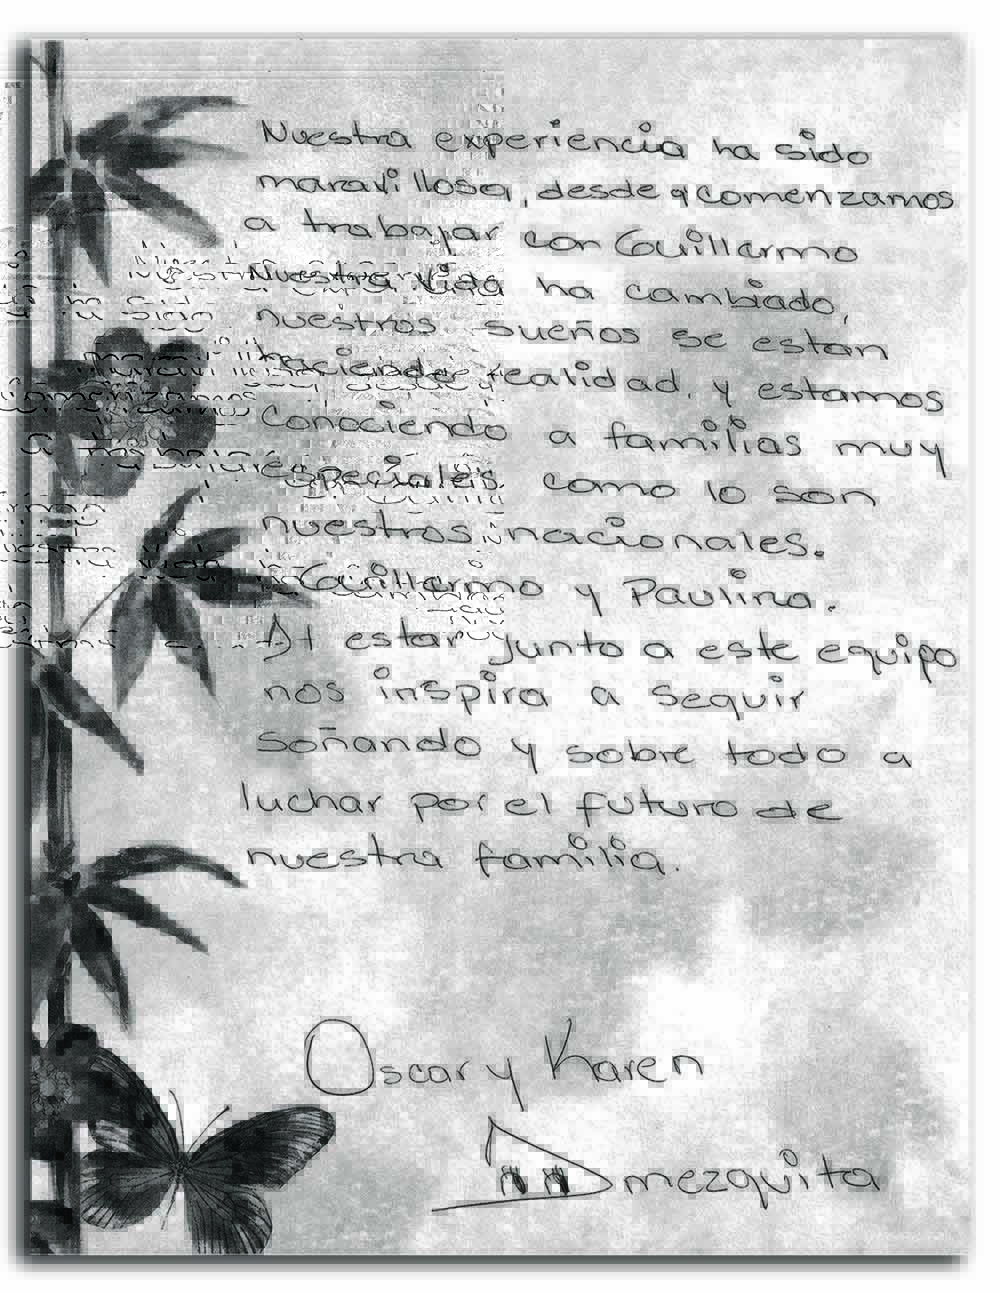 Nuestra experiencia ha sido
maravillosa, desde q comenzamos
a trabajar con Guillermo
Nuestra vida ha cambiado,
nuestros sueños se estan
haciendo realidad, y estamos
conociendo a familias muy
especiales. como lo son
nuestros nacionales.
Guillermo y Paulina.
Al estar junto a este equipo
nos inspira a seguir
soñando y sobre todo a
luchar por el futuro de
nuestra familia.
Oscar y Karen
Amezquita